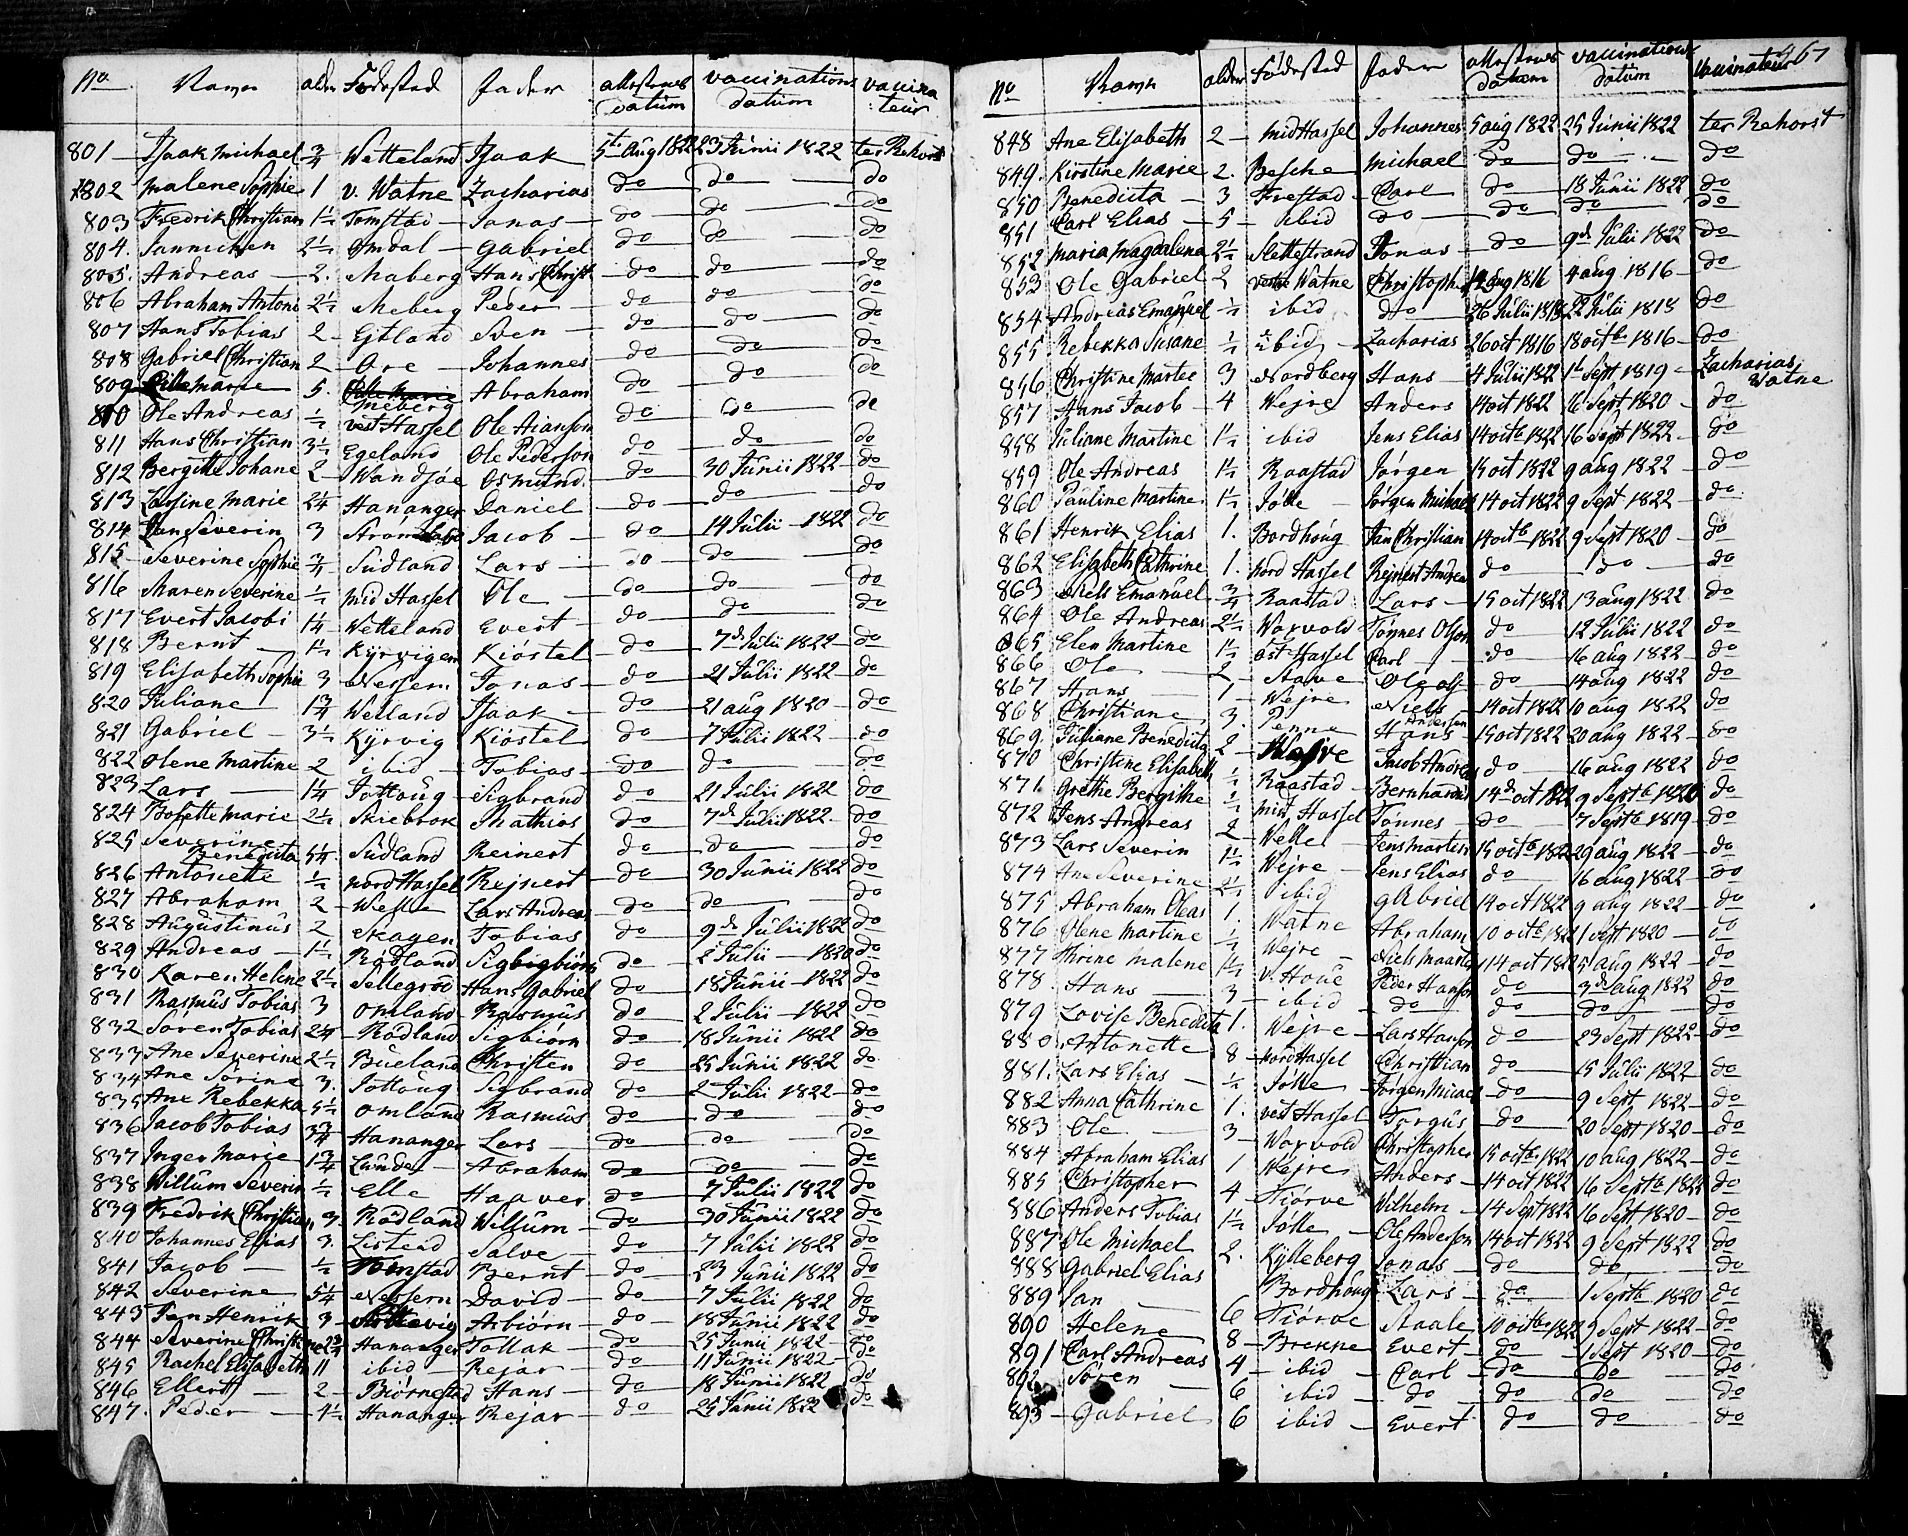 No Navn alder Fødestæd Fader attestens datum vaccinations datum vaccina:teur
801 Isaak Michael 3/4 Wetteland Isaak 5t Aug 1822 23 Junii 1822 ter Rehorst
802 Malene Sophie 1 v. Watne Zacharias do do do
803 Fredrik Christian 1½ Tomstad Jonas do do do
804. Sannichen 2½ Omdal Gabriel do do do
805. Andreas 2. Maberg Hans Christ. do do do
806 Abraham Antoni 2½ Meberg Peder do do do
807 Hans Tobias 2 Ejtland Sven do do do
808 Gabriel Christian 2 Ore Johannes do do do
809 Cille Marie 5. Meberg Abraham do do do
810 Ole Andreas ½ vest Hassel Ole Aianson do do do
811 Hans Christian 3½ Egeland Ole Pederson do do do
812 Bergitte Johane 2 Wandsøe Osmund do 30 Junii 1822 do
813 Lassine Marie 2¼ Hananger Daniel do do do
814 Jan Severin 3 Jacob do 14 Julii 1822 do
815 Severine Sophie 3/4 Sudland Lars do do do
816 Maren Severine ½ Mid Hassel Ole do do do
817 Evert Jacobi 1¼ Wetteland Evert do do do
818 Bernt 1½ Kyrvigen Kiøstel do 7de Julii 1822 do
819 Elisabeth Sophie 3 Nessem Jonas do 21 Julii 1822 do
820 Juliane 1¾ Welland Isaak do 21 aug 1820 do
821 Gabriel 3½ Kyrvig Kiøstel do 7 Julii 1822 do
822 Olene Martine 2 ibid Tobias do do do
823 Lars 1¼ Jottoug Sigbrand do 21 Julii 1822 do
824 Bolette Marie 2½ Skiebrok Mathias do 7de Julii 1822. do
825 Severine Benedicta 5¼ Sudland Reinert do do do
826 Antonette ½ nord Hassel Rejnert do 30 Junii 1822 do
827 Abraham 2 Welle Lars Andreas do do do
828 Augustinus 2 Skagen Tobias do 9de Julii 1822 do
829 Andreas 1½ Rødland Sigbiørn do 2 Julii 1820 do
830 Karen Helene 2½ Sellegrod Hans Gabriel do 18 Junii 1822 do
831 Rasmus Tobias 3 Omland Rasmus do 2 Julii 1822 do
832 Soren Tobias 2¼ Rodland Sigbiørn do 18 Junii 1822 do
833 Ane Severine 2½ Bueland Christen do 25 Junii 1822 do
834 Ane Sorine 3. Jottoug Sigbrand do 2 Julii 1822 do
835 Ane Rebekka 5½ Omland Rasmus do do do
836 Jacob Tobias 3¾ Hananger Lars do do do
837 Inger Marie 1¾ Lunde Abraham do do do
838 Willum Severin ½ Elle Haaver do 7 Julii 1822 do
839 Fredrik Christian 3. Rødland Willum do 30 Junii 1822 do
840 Johannes Elias 3. Listead Salve do 7 Julii 1822 do
841 Jacob ½ Tomstad Bernt do 23 Junii 1822 do
842 Severine 5¼ Nessem David do 7 Julii 1822 do
843 Jan Henrik 3 Asbiørn do 18 Junii 1822 do
844 Severine Christine Hananger Tollak do 25 Junii 1822 do
845 Rachel Elisabeth 11 ibid Rejar do 11 Junii 1822 do
846 Ellert 2 Biørnestad Hans do 18 Junii 1822 do
847. Peder 4½ Hananger Rejar do 25 Junii 1822 do
467
No Navn alder Fødestæd Fader attestens datum vaccinations datum Vaccinateur
848 Ane Elisabeth 2 Mid Hassel Johannes 5 aug 1822 25 Junii 1822 ter Rehorst
849. Kirstine Marie 2. Besche Michael do do do
850 Benedicta 3 Frestad Carl do 18 Junii 1822 do
851 Carl Elias 5 ibid do do do do
852 Maria Magdalena 2½ Slettestrand Jonas do 9de Julii 1822 do
853 Ole Gabriel 2 vestre Watne Christopher 14 aug 1816 4 aug 1816 do
854 Andreas Emanuel ½ ibid do 26 Julii 1818 22 Julii 1818 do
855 Rebekka Susane ½ ibid Zacharias 26 oct 1816 18 octb 1816 do
856 Christine Martee 3 Nordberg Hans 4 Julii 1822 1t Sept 1819 Zacharias Watne
857 Hans Jacob 4 Wejre Anders 14 oct 1822 16 Sept 1820 do
858 Juliane Martine 1½ ibid Jens Elias 14 octb 1822 16 Sept 1822 do
859 Ole Andreas 1½ Raastad Jørgen 15 oct 1822 9 aug 1822 do
860 Pauline Martine 1½ Jølle Jørgen Michael 14 oct 1822 9 Sept 1822 do
861 Henrik Elias 1. Bordhoug Jan Christian 14 octb 1822 9 Sept 1820 do
862 Elisabeth Cathrine 1. nord Hassel Rejnert Andreas do do do
863 Niels Emanuel 3/4 Raastad Lars 15 oct 1822 13 aug 1822 do
864 Ole Andreas 2½ Worvold Tønnes Olson do 12 Julii 1822 do
865 Elen Martine 1½ ost Hassel Carl do 16 aug 1822 do
866 Ole 2 Stave Ole do 14 aug 1822 do
867 Hans 1 Wejre Niels 14 oct 1822 10 aug 1822 do
868 Christiane 3. Hans Andersen 15 oct 1822 20 aug 1822 do
869. Juliane Benedicta 2 Wejre Jacob Andreas do 16 aug 1822 do
870 Christine Elisabeth ½ Raastad Bernhardus 14de oct 1822 9 Septb 1820 do
871. Grethe Bergithe ½ mid Hassel Tønnes do 7 Septb 1819 do
872 Jens Andreas 2 Welle Jens Morten 15 octb 1822 29 aug 1822 do
873 Lars Severin 1½ Wejre Jens Elias do 16 aug 1822 do
874 Ane Severine 2½ ibid gabriel 14 oct 1822 9 aug 1822 do
875 Abraham Oleas 1. Watne Abraham 10 octb 1822 1 Sept 1820 do
876 Olene Martine ½ Wejre Niels Maartens 14 oct 1822 5 aug 1822 do
877 Thrine Malene 1½ v. Houe Peder Hanson do 3de aug 1822 do
878. Hans 3 ibid do do do do
879 Lovise Benedicta 1. Wejre Lars Hanson do 23 Sept 1822 do
880 Antonette 8 nord Hassel Christian do 15 Julii 1822 do
881. Lars Elias ½ Jølle Jørgen Micael do 9 Sept 1822 do
882 Anna Cathrine 1. vest Hassel Torgus do 20 Sept 1820 do
883 Ole 3 Worvold Christopher 15 octb 1822 10 aug 1822 do
884 Abraham Elias 1 Wejre Anders 14 oct 1822 16 Septb 1822 do
885 Christopher 4 Tiørve Wilhelm 14 Sept 1822 16 Sept 1820 do
886 Anders Tobias 1½ Jølle Ole Anderson 14 oct 1822 9 Sept 1822 do
887 Ole Michael 2. Kylleberg Jonas do do do
888 Gabriel Elias Bordhoug Lars do 1 Septb 1820 do
889 Jan 6 Tiørve Staale 10 octbr 1822 9 Sept 1822 do
890 Helene 8 Brekne Evert do 1 Sept 1820 do
891 Carl Andreas 4 ibid Carl do do do
892 Søren 6 ibid do do do do
893 Gabriel 6 ibid Evert do do do